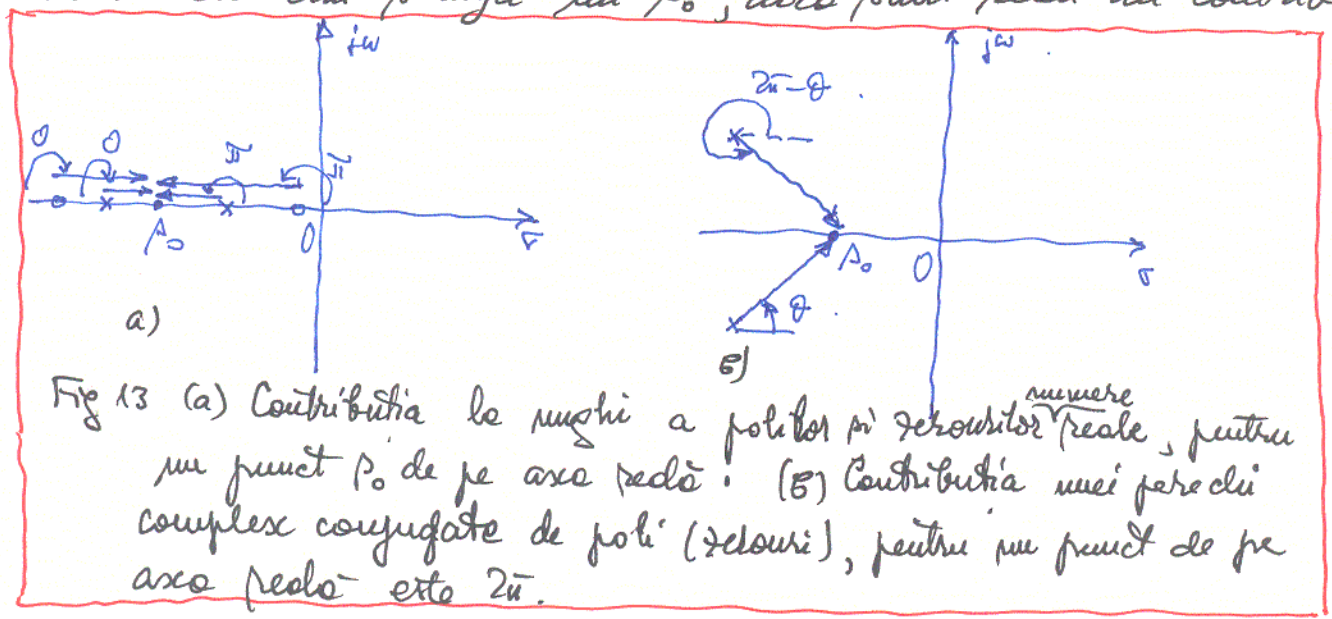 la p₀,
jω
0
0
π
π
p₀
0
σ
a)
jω
2π-θ
p₀
0
σ
θ
b)
numere
Fig 13 (a) Contributia la unghi a polilor si zerourilor reale, pentru
un punct p₀ de pe axa reală. (b) Contributia unei perechi
complex conjugate de poli (zerouri), pentru un punct de pe
axa reală este 2π.